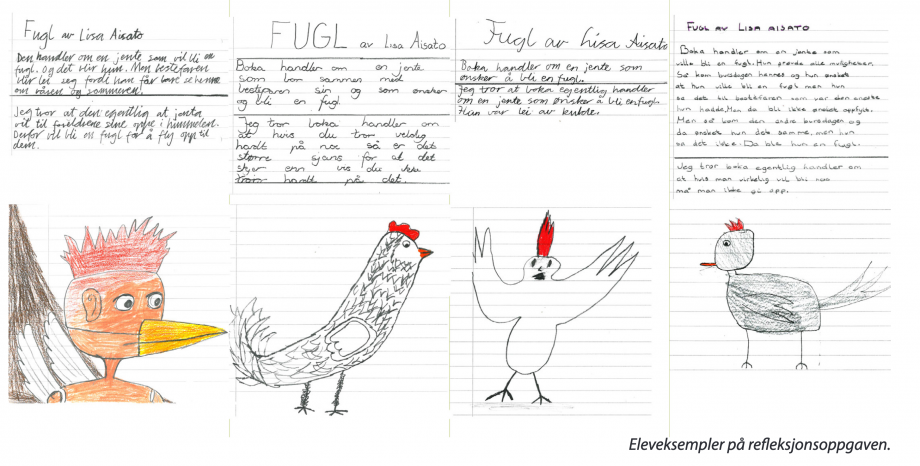 Fugl av Lisa Aisato
Den handler om en jente som vil bli en
fugl. og det blir hun. Men bestefaren
blir lei seg fordi han får bare se henne
om våren og sommeren.
Jeg tror at den egentlig at jenta
vil til foreldrene sine oppe i himmelen.
Derfor vil bli en fugl for å fly opp til
dem.
FUGL av Lisa Aisato
Boka handler om en jente
som bor sammen mid
bestefaren sin og som ønsker
og bli en fugl.
Jeg tror boka handler om
at hvis du tror veldig
hardt på noe så er det
større sjans for at det
skjer enn vis du ikke
tror hardt på det.
Fugl av Lisa Aisato
Boka handler om en jente som
ønsker å bli en fugl.
Jeg tror at boka egentlig handler
om en jente som ønsker å bli en fugl.
Hun var lei av kubbe.
FUGL AV LISA AISATO
Boka handler om en jente som
ville bli en fugl. Hun prøvde alle muligheter.
Så kom bursdagen hennes og hun ønsket
at hun ville bli en fugl men hun
sa det til bestefaren som var den eneste
hun hadde. Men da ble ikke ønsket oppfylt.
Men så kom den andre bursdagen og
da ønsket hun det samme, men hun
sa det ikke. Da ble hun en fugl.
Jeg tror boka egentlig handler om
at hvis man virkelig vil bli noe
må man ikke gi opp.
Eleveksempler på refleksjonsoppgaven.